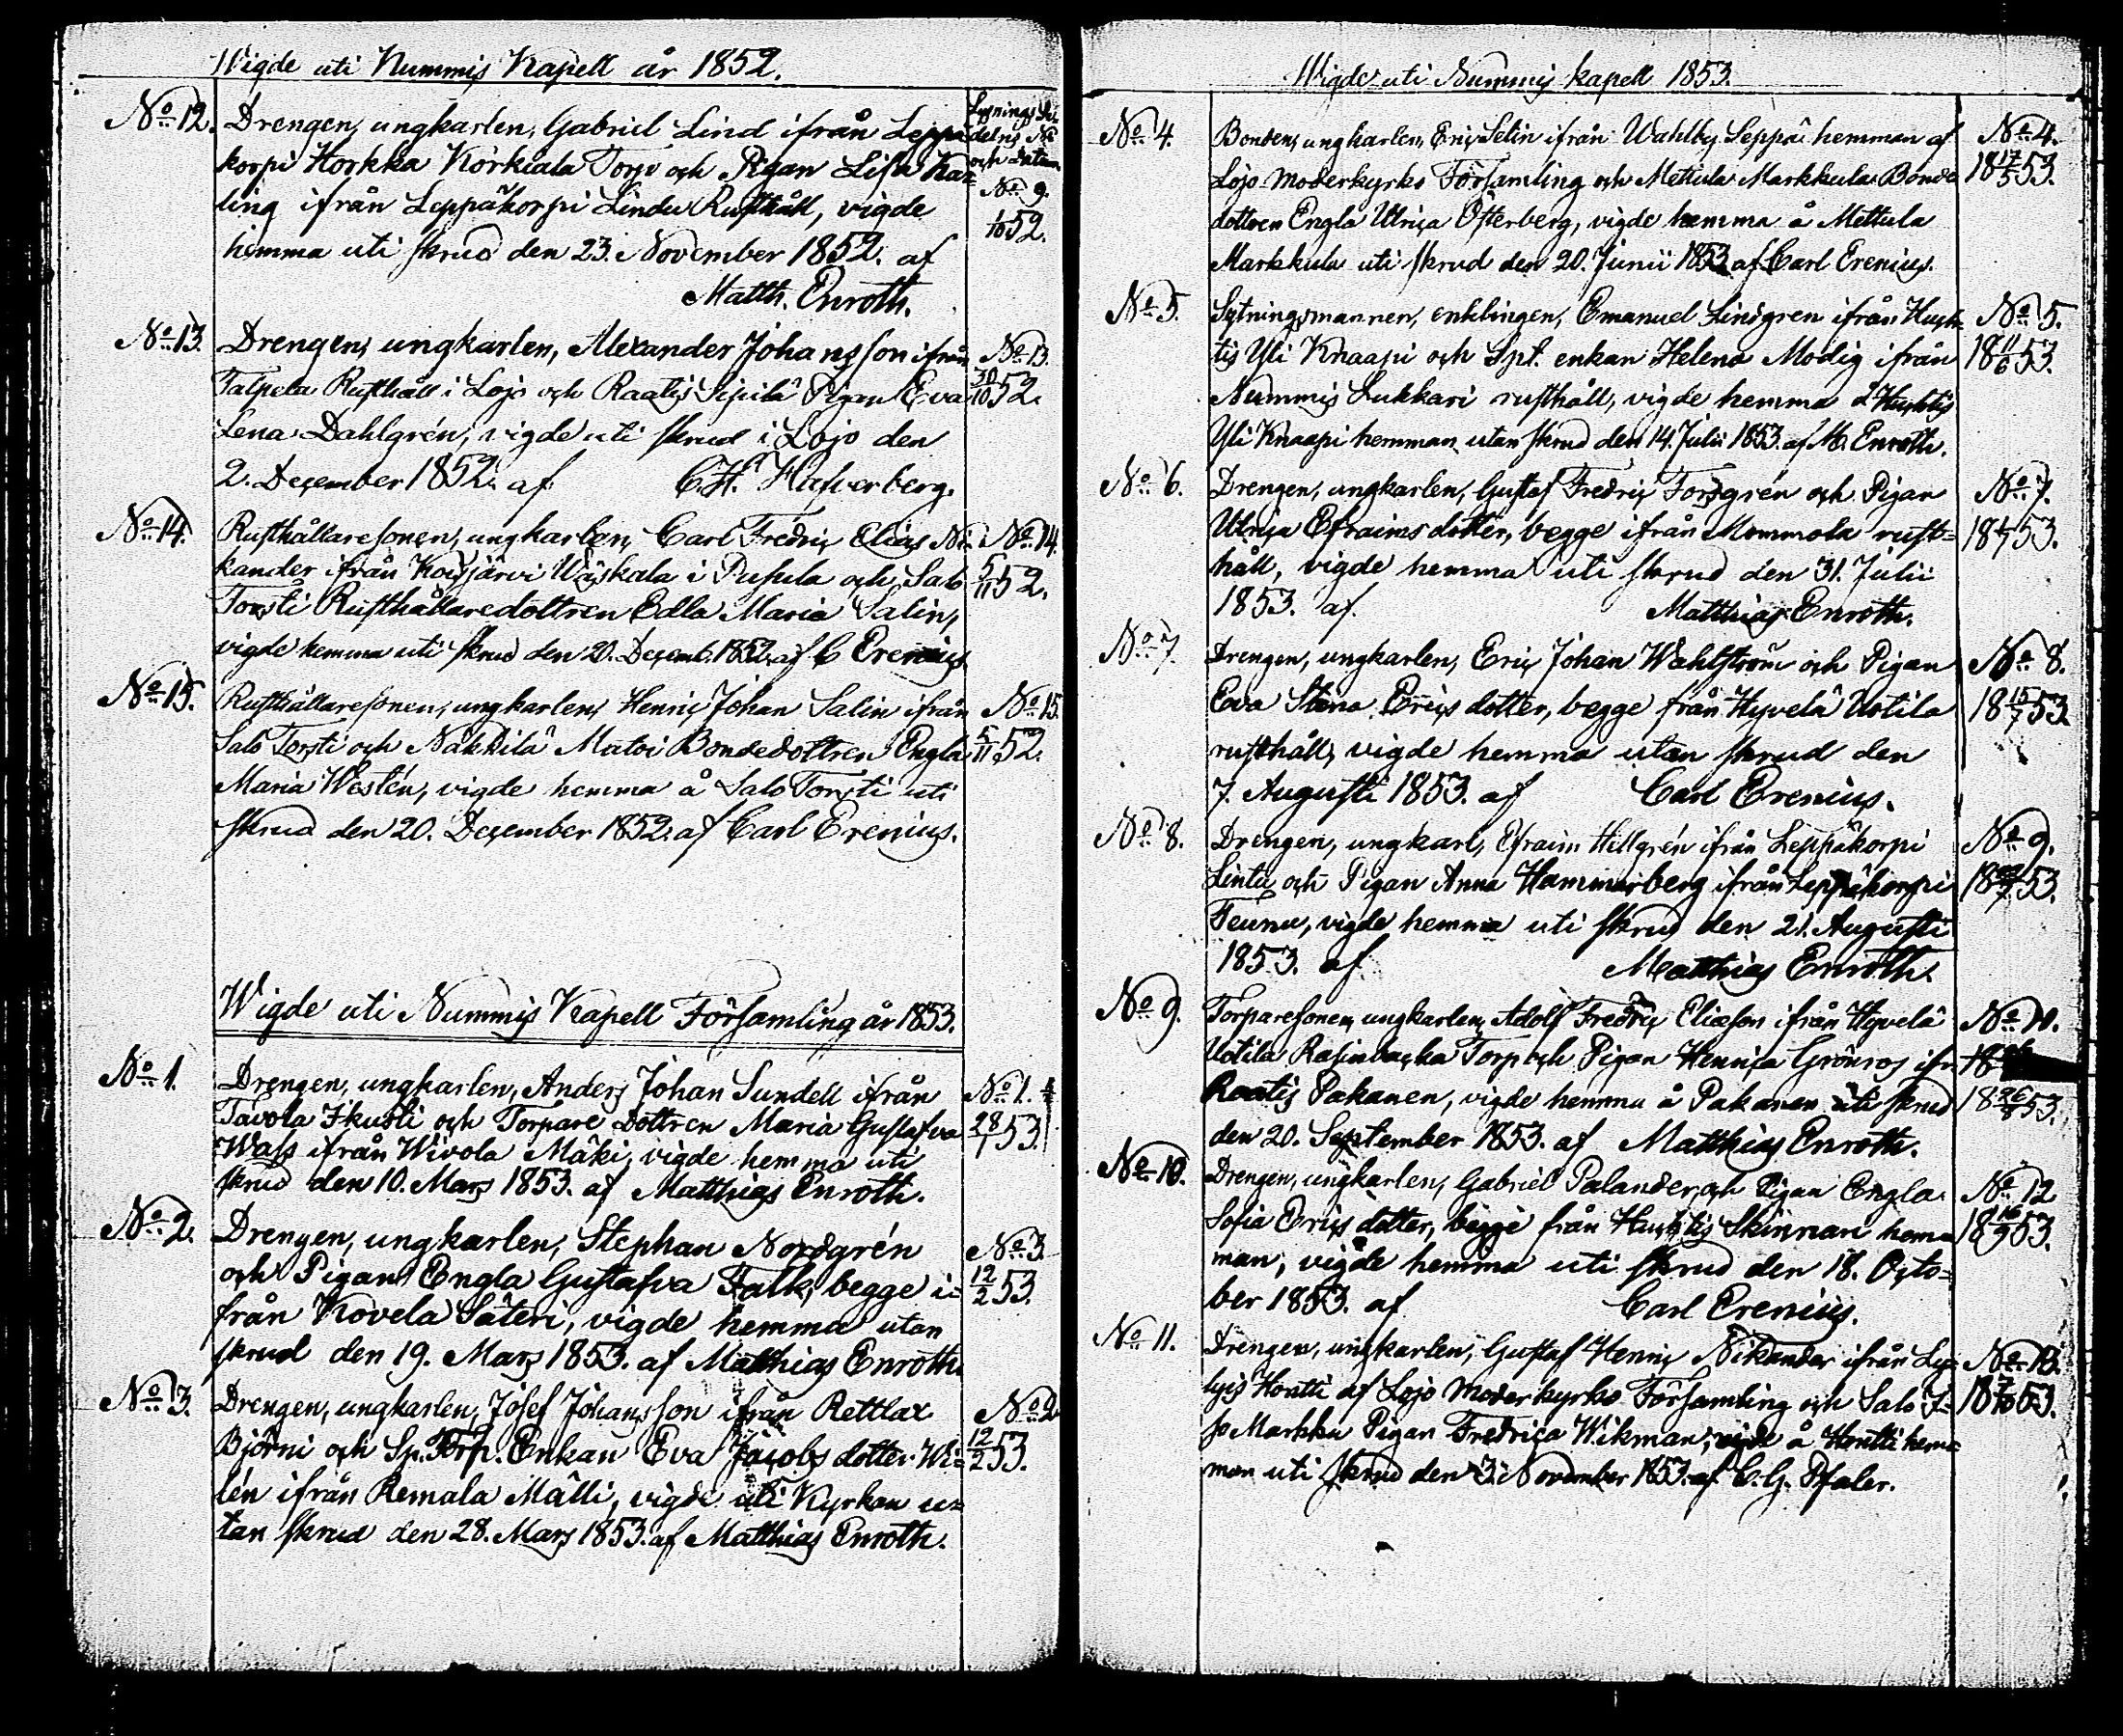 Wigde uti Nummis Kapell år 1852.
Lysnings Se-
delns No
och Datum
No 12. Drengen, ungkarlen, Gabriel Lind ifrån Leppä
korpi Horkka Körkiala Torp och Pigan Lisa Kar-
No 9.
ling ifrån Leppäkorpi Lindu Rusthåll, vigde
1/10 52.
hemma uti skrud den 23. November 1852. af
Matth. Enroth.
No 13. Drengen, ungkarlen, Alexander Johansson ifrån No 13.
Talpela Rusthåll i Lojo och Raatis Sipilä Pigan Eva 30/10 52.
Lena Dahlgrén, vigde uti skrud i Lojo den
2. December 1852. af C.H. Hafverberg.
No 14. Rusthållaresonen, ungkarlen, Carl Fredric Elias Ni- No 14.
kander ifrån Koisjärvi Wäskala i Pusula och Salo 5/11 52.
Torsti Rusthållaredottren Edla Maria Salin,
vigde hemma uti skrud den 20. Decemb. 1852. af C Erenius
No 15. Rusthållaresonen, ungkarlen, Henric Johan Salin ifrån No 15.
Salo Torsti och Näkkilä Matoi Bondedottren Engla 5/11 52.
Maria Westén, vigde hemma å Salo Torsti uti
skrud den 20. December 1852. af Carl Erenius.
Wigde uti Nummis Kapell Församling år 1853.
No 1. Drengen, ungkarlen, Anders Johan Sundell ifrån No 1.
Tavola Ikusti och Torpare dottren Maria Gustafva 28/1 53.
Wass ifrån Wivola Mäki, vigde hemma uti
skrud den 10. Mars 1853. af Matthias Enroth.
No 2. Drengen, ungkarlen, Stephan Nordgrén No 3.
och Pigan Engla Gustafva Falk, begge i- 12/2 53.
från Kovela Säteri, vigde hemma utan
skrud den 19. Mars 1853. af Matthias Enroth.
No 3. Drengen, ungkarlen, Josef Johansson ifrån Rettlax No 2
Björni och Sp. Torp. Enkan Eva Jacobs dotter Wi- 12/2 53.
lén ifrån Remala Mälli, vigde uti Kyrkan u-
tan skrud den 28. Mars 1853. af Matthias Enroth.
Wigde uti Nummis kapell 1853.
No 4. Bonden, ungkarlen, Eric Selin ifrån Wahlby Seppä hemman af No 4.
Lojo Moderkyrko Församling och Mettula Markkula Bonde 18 17/5 53.
dottren Engla Ulrica Österberg, vigde hemma å Mettula
Markkula uti skrud den 20. Junii 1853. af Carl Erenius.
No 5. Sytningsmannen, enklingen, Emanuel Lindgren ifrån Huh- No 5.
tis Yli Knaapi och Spt. enkan Helena Modig ifrån 18 11/6 53.
Nummis Lukkari rusthåll, vigde hemma å Huhtis
Yli Knaapi hemman utan skrud den 14. Julii 1853. af M. Enroth.
No 6. Drengen, ungkarlen, Gustaf Fredric Forsgrén och Pigan No 7.
Ulrica Efraims dotter, begge ifrån Mommola rust- 18 1/7 53.
håll, vigde hemma uti skrud den 31. Julii
1853. af Matthias Enroth.
No 7. Drengen, ungkarlen, Eric Johan Wahlström och Pigan No 8.
Eva Stina Erics dotter, begge från Hyvelä Uotila 18 15/7 53
rusthåll, vigde hemma utan skrud den
7. Augusti 1853. af Carl Erenius.
No 8. Drengen, ungkarl, Efraim Hellgrén ifrån Leppäkorpi No 9.
Lintu och Pigan Anna Hammarberg ifrån Leppäkorpi 18 /7 53.
Teunu, vigde hemma uti skrud den 21. Augusti
1853. af Matthias Enroth.
No 9. Torparesonen, ungkarlen, Adolf Fredric Eliæson ifrån Hyvelä No 10.
Uotila Rasinbacka Torp och Pigan Henrica Grönros ifr.
Raatis Pakanen, vigde hemma å Pakanen uti skrud 18 26/8 53.
den 20. September 1853. af Matthias Enroth.
No 10. Drengen, ungkarlen, Gabriel Palander, och Pigan Engla No 12
Sofia Erics dotter, begge från Huhtis Skinnari hem- 18 16/9 53.
man, vigde hemma uti skrud den 18. Octo-
ber 1853. af Carl Erenius.
No 11. Drengen, ungkarlen, Gustaf Henric Nikander ifrån No 13.
Hontti af Lojo Moderkyrko Församling och Salo I- 18 7/10 53.
so Markku Pigan Fredrica Wikman, vigde å Hontti hem-
man uti skrud den 3. November 1853. af C.G. Pfaler.